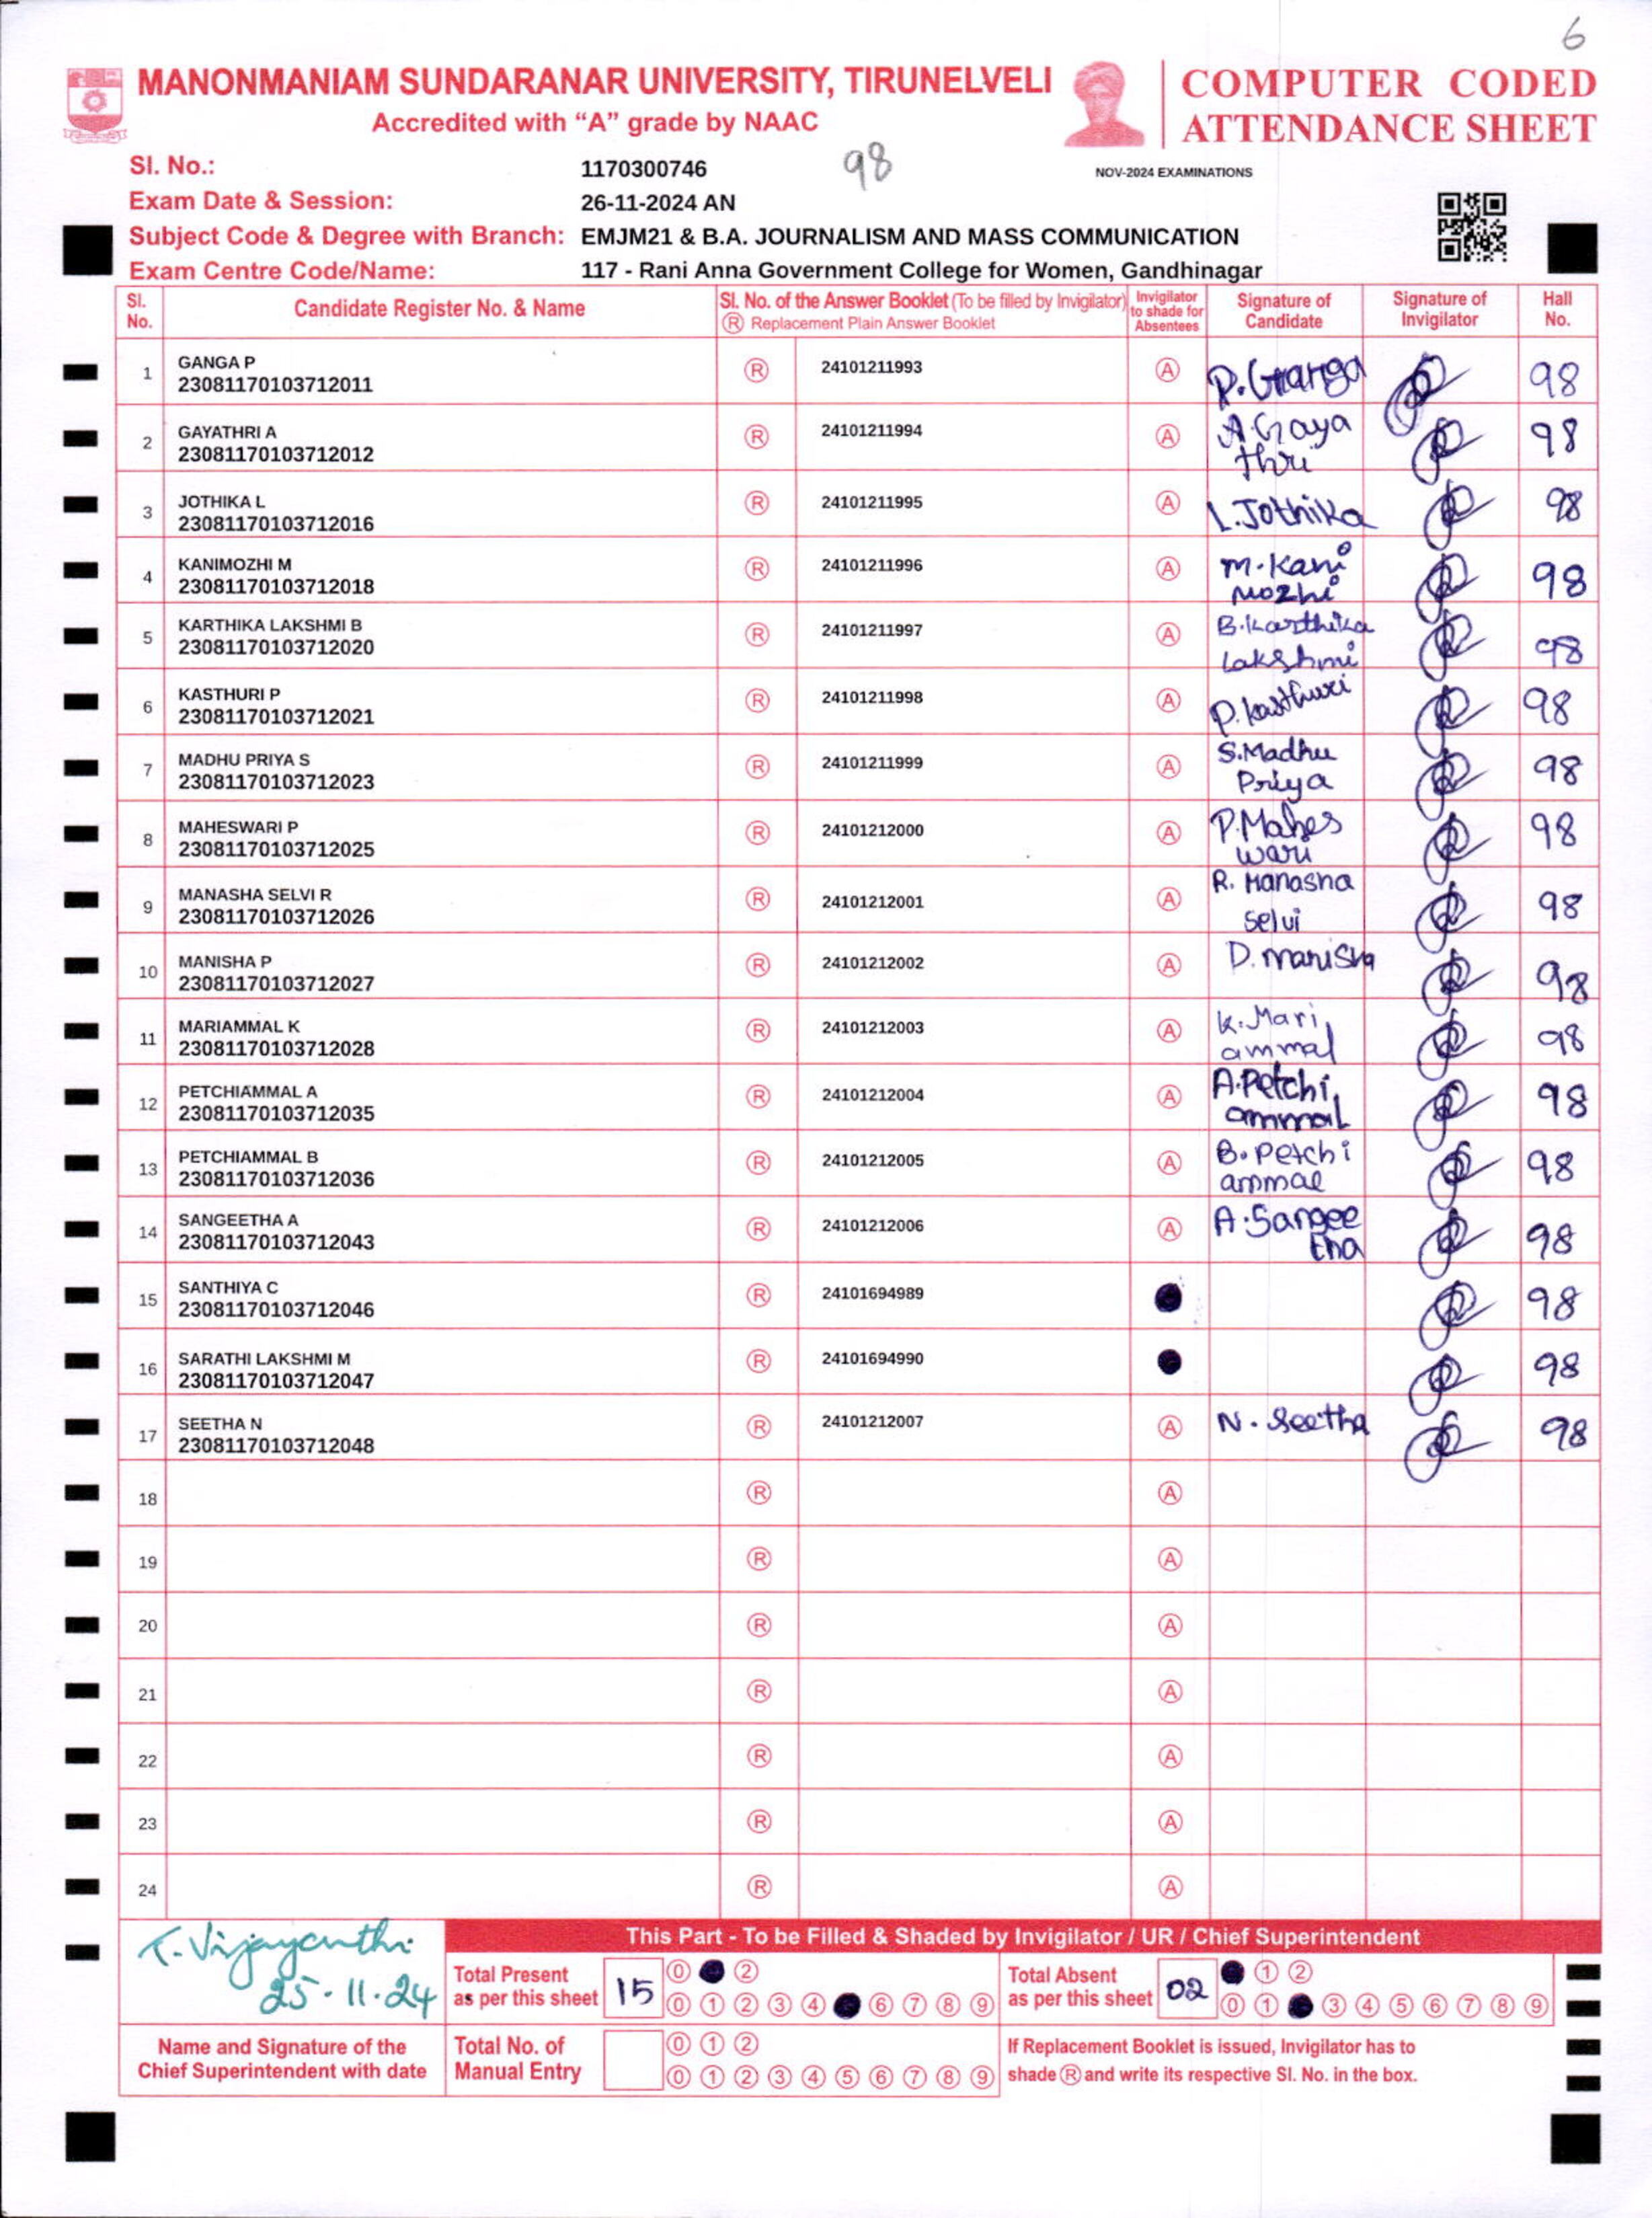 6
MANONMANIAM SUNDARANAR UNIVERSITY, TIRUNELVELI
Accredited with “A” grade by NAAC
COMPUTER CODED
ATTENDANCE SHEET
Sl. No.: 1170300746 98 NOV-2024 EXAMINATIONS
Exam Date & Session: 26-11-2024 AN
Subject Code & Degree with Branch: EMJM21 & B.A. JOURNALISM AND MASS COMMUNICATION
Exam Centre Code/Name: 117 - Rani Anna Government College for Women, Gandhinagar
Sl. No. Candidate Register No. & Name Sl. No. of the Answer Booklet (To be filled by Invigilator) Ⓡ Replacement Plain Answer Booklet Invigilator to shade for Absentees Signature of Candidate Signature of Invigilator Hall No.
1 GANGA P Ⓡ 24101211993 Ⓐ P.Ganga 98
23081170103712011
2 GAYATHRI A Ⓡ 24101211994 Ⓐ A.Gaya 98
23081170103712012 thri
3 JOTHIKA L Ⓡ 24101211995 Ⓐ L.Jothika 98
23081170103712016
4 KANIMOZHI M Ⓡ 24101211996 Ⓐ M.Kani 98
23081170103712018 Mozhi
5 KARTHIKA LAKSHMI B Ⓡ 24101211997 Ⓐ B.Karthika 98
23081170103712020 Lakshmi
6 KASTHURI P Ⓡ 24101211998 Ⓐ P.Kasthuri 98
23081170103712021
7 MADHU PRIYA S Ⓡ 24101211999 Ⓐ S.Madhu 98
23081170103712023 Priya
8 MAHESWARI P Ⓡ 24101212000 Ⓐ P.Mahes 98
23081170103712025 wari
9 MANASHA SELVI R Ⓡ 24101212001 Ⓐ R. Manasha 98
23081170103712026 Selvi
10 MANISHA P Ⓡ 24101212002 Ⓐ P.Manisha 98
23081170103712027
11 MARIAMMAL K Ⓡ 24101212003 Ⓐ K.Mari 98
23081170103712028 ammal
12 PETCHIAMMAL A Ⓡ 24101212004 Ⓐ A.Petchi 98
23081170103712035 ammal
13 PETCHIAMMAL B Ⓡ 24101212005 Ⓐ B.Petchi 98
23081170103712036 ammal
14 SANGEETHA A Ⓡ 24101212006 Ⓐ A.Sangee 98
23081170103712043 tha
15 SANTHIYA C Ⓡ 24101694989 98
23081170103712046
16 SARATHI LAKSHMI M Ⓡ 24101694990 98
23081170103712047
17 SEETHA N Ⓡ 24101212007 Ⓐ N. Seetha 98
23081170103712048
18 Ⓡ Ⓐ
19 Ⓡ Ⓐ
20 Ⓡ Ⓐ
21 Ⓡ Ⓐ
22 Ⓡ Ⓐ
23 Ⓡ Ⓐ
24 Ⓡ Ⓐ
T. Vijayanthi
25.11.24
Name and Signature of the
Chief Superintendent with date
This Part - To be Filled & Shaded by Invigilator / UR / Chief Superintendent
Total Present as per this sheet 15
0 2
0 1 2 3 4 6 7 8 9
Total Absent as per this sheet 02
1 2
0 1 3 4 5 6 7 8 9
Total No. of Manual Entry
0 1 2
0 1 2 3 4 5 6 7 8 9
If Replacement Booklet is issued, Invigilator has to
shade Ⓡ and write its respective Sl. No. in the box.